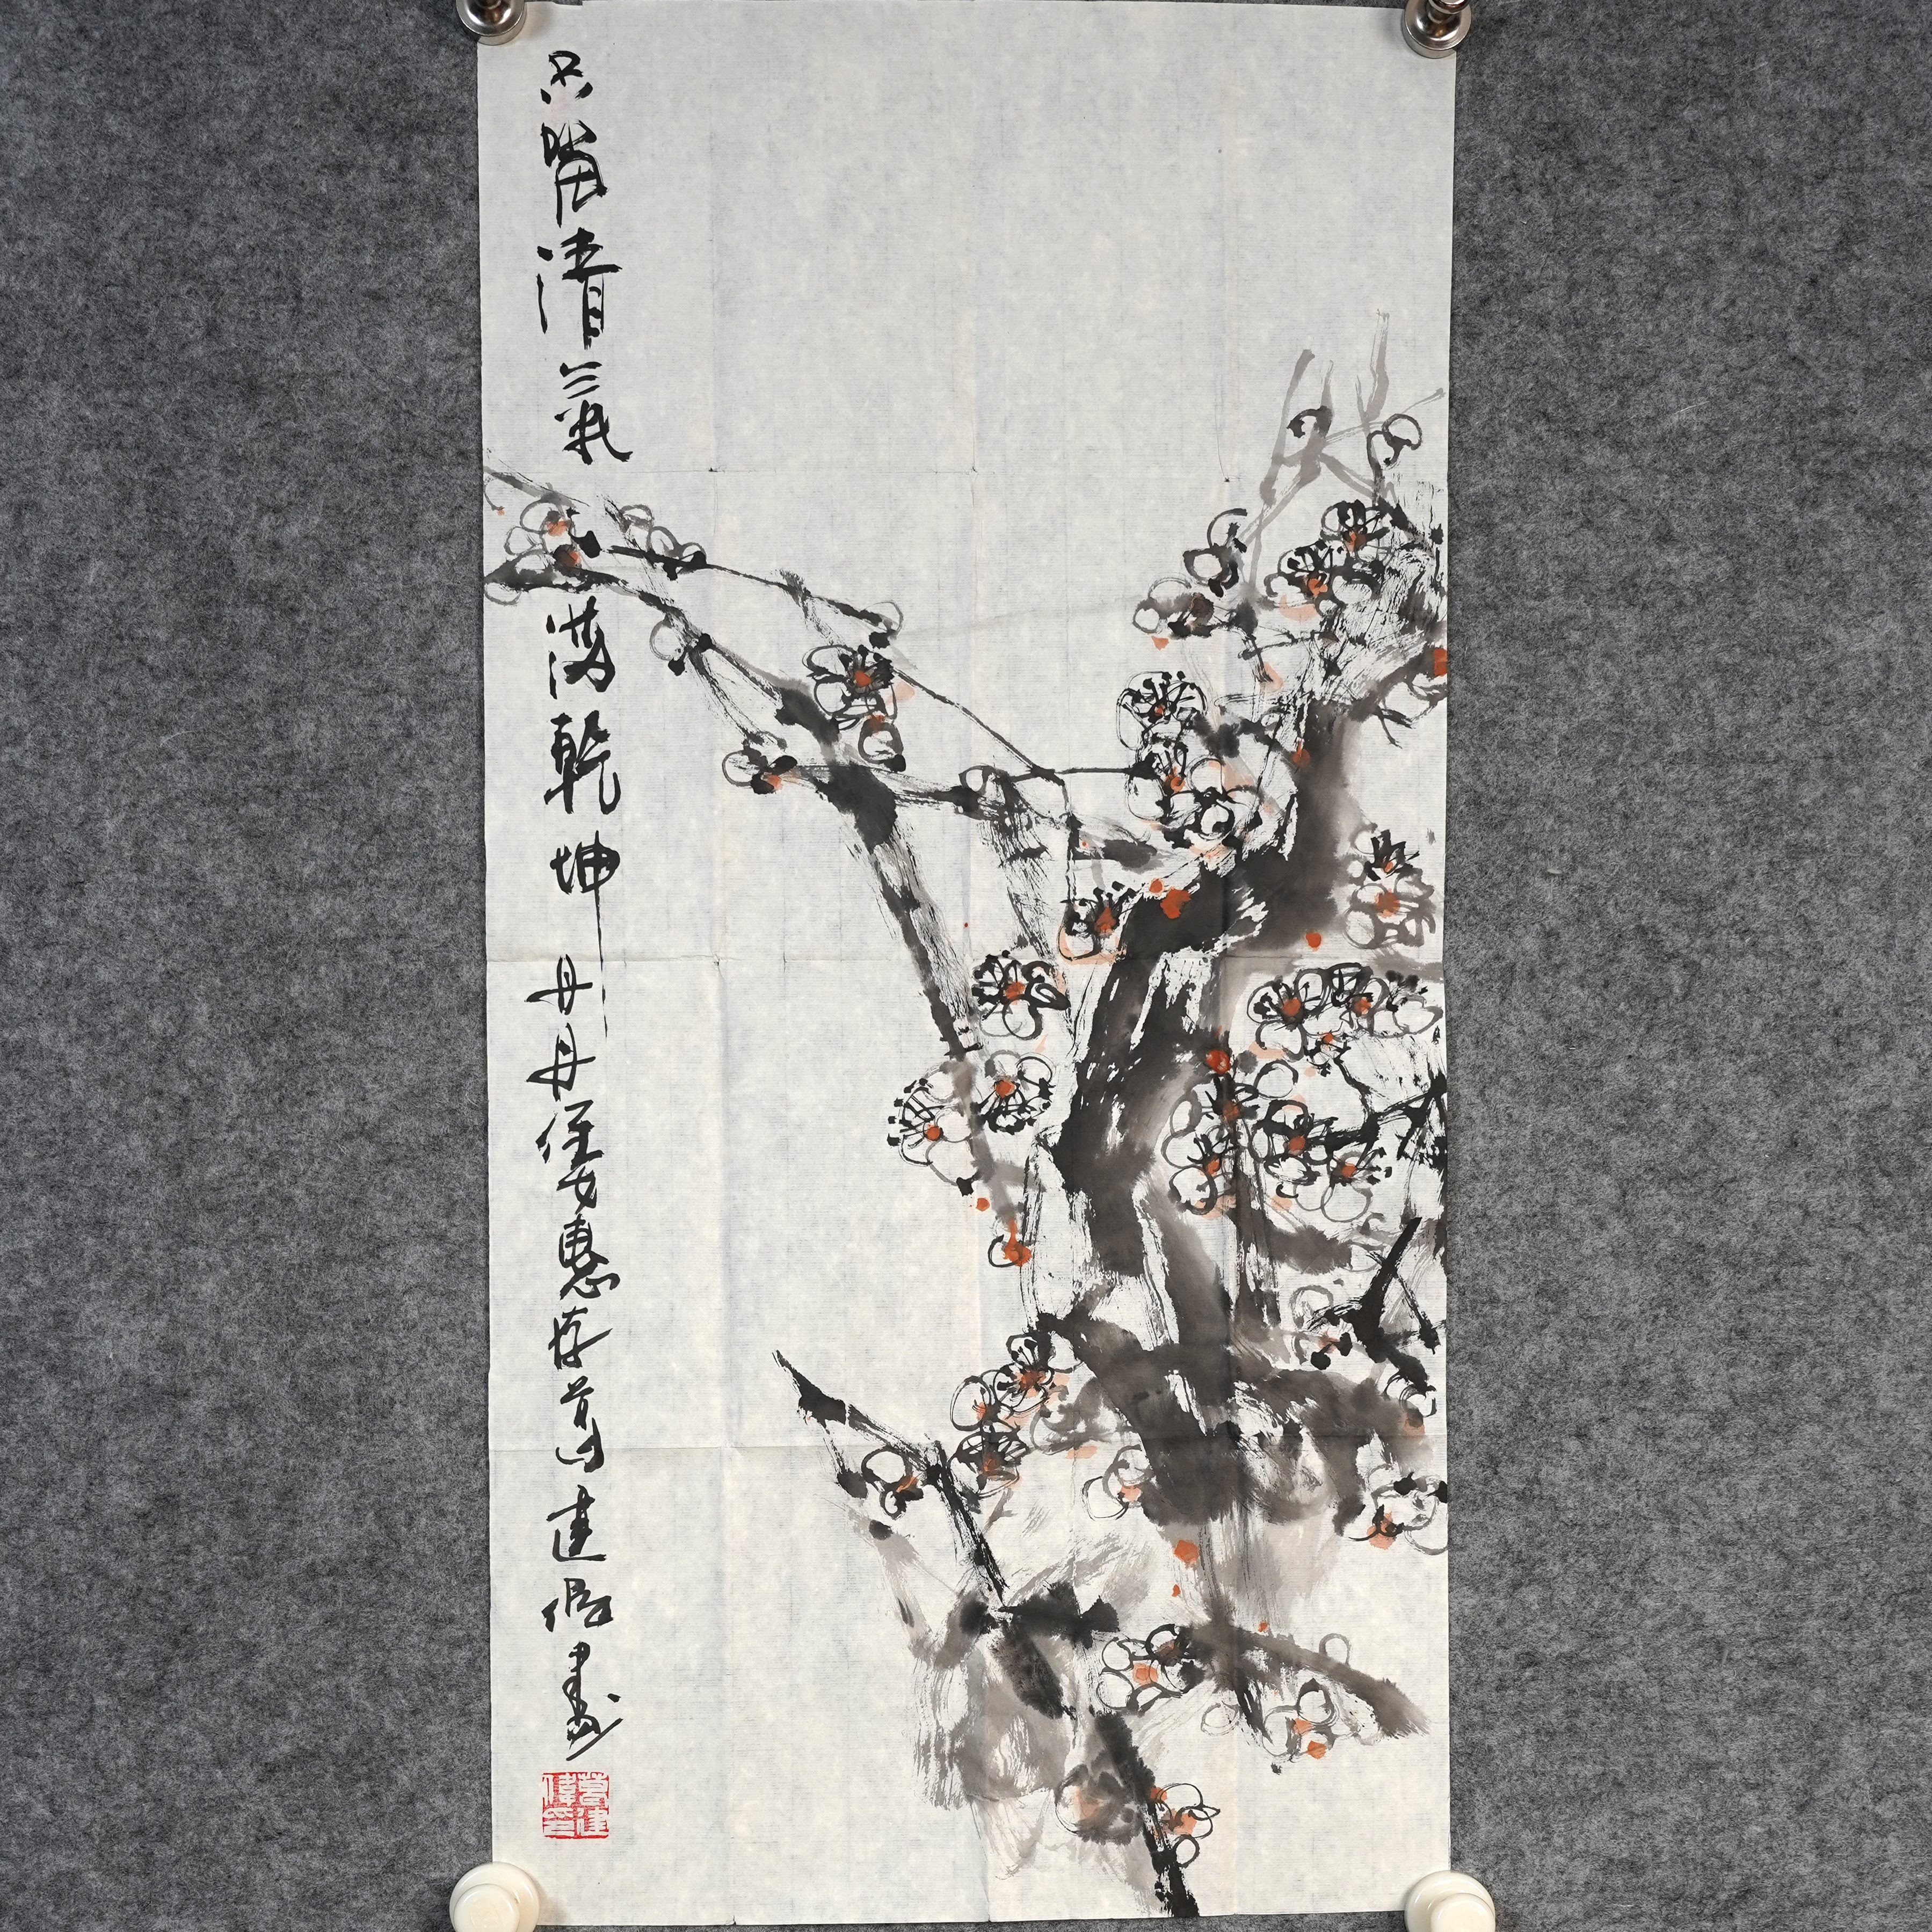 只留清氣滿乾坤 丹丹侄女惠存 葛建偉畫
葛建偉印